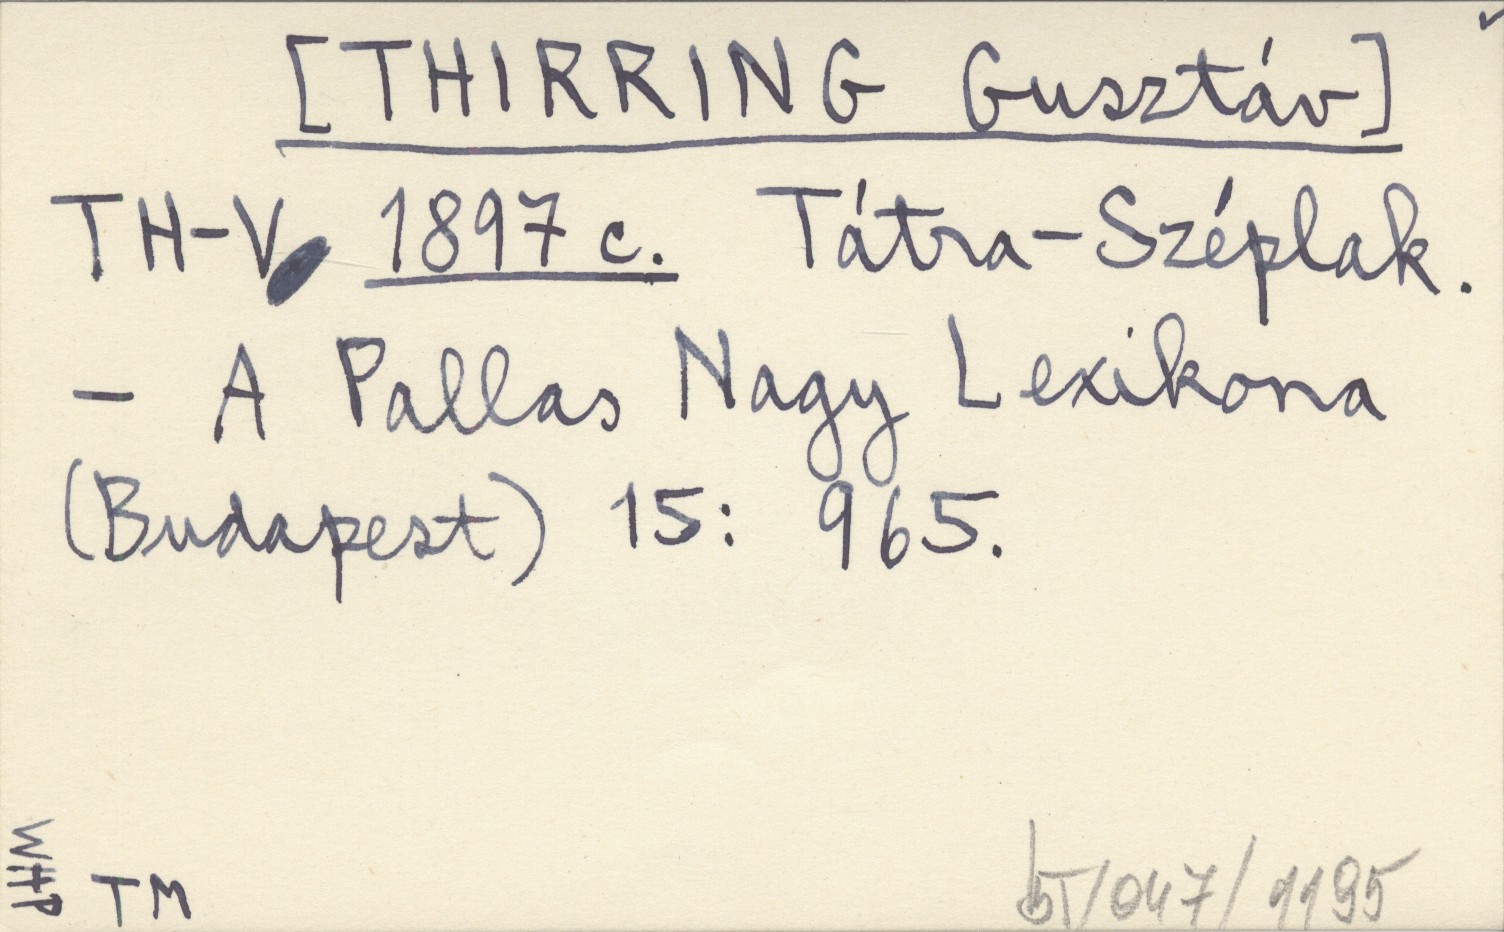 [THIRRING Gusztáv]
TH-V 1897 c. Tátra-Széplak.
- A Pallas Nagy Lexikona
(Budapest) 15: 965.
WHP
TM
bT/047/1195